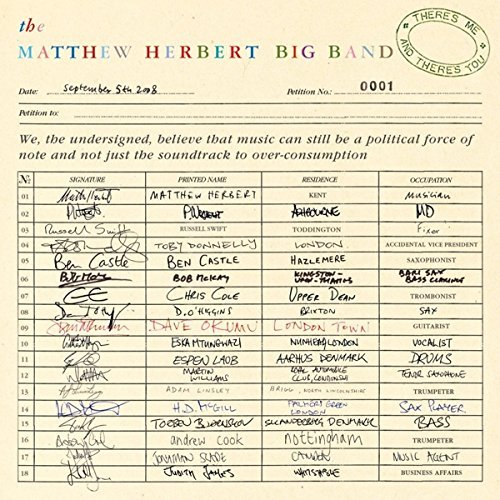 the
MATTHEW HERBERT BIG BAND
THERE'S ME AND THERE'S YOU
Date: September 5th 2008 Petition No.: 0001
Petition to:
We, the undersigned, believe that music can still be a political force of
note and not just the soundtrack to over-consumption
No SIGNATURE PRINTED NAME RESIDENCE OCCUPATION
01 MATTHEW HERBERT KENT Musician
02 P. WRIGHT ASHBOURNE MD
03 Russell Swift RUSSELL SWIFT TODDINGTON Fixer
04 TOBY DONNELLY LONDON ACCIDENTAL VICE PRESIDENT
05 Ben Castle BEN CASTLE HAZLEMERE SAXOPHONIST
06 BOB McKAY KINGSTON-UPON-THAMES BARI SAX BASS CLARINET
07 CHRIS COLE UPPER DEAN TROMBONIST
08 D. O'HIGGINS BRIXTON SAX
09 DAVE OKUMU LONDON TOWN GUITARIST
10 ESKA MTUNGWAZI NUNHEAD, LONDON VOCALIST
11 ESPEN LAUB AARHUS DENMARK DRUMS
12 MARTIN WILLIAMS TENOR SAXOPHONE
13 ADAM LINSLEY BRIGG, NORTH LINCOLNSHIRE TRUMPETER
14 PALMERS GREEN LONDON SAX PLAYER
15 SKANDERBORG DENMARK BASS
16 andrew cook nottingham TRUMPETER
17 JONATHAN CAMDEN MUSIC AGENT
18 JUDITH JAMES WHITSTABLE BUSINESS AFFAIRS